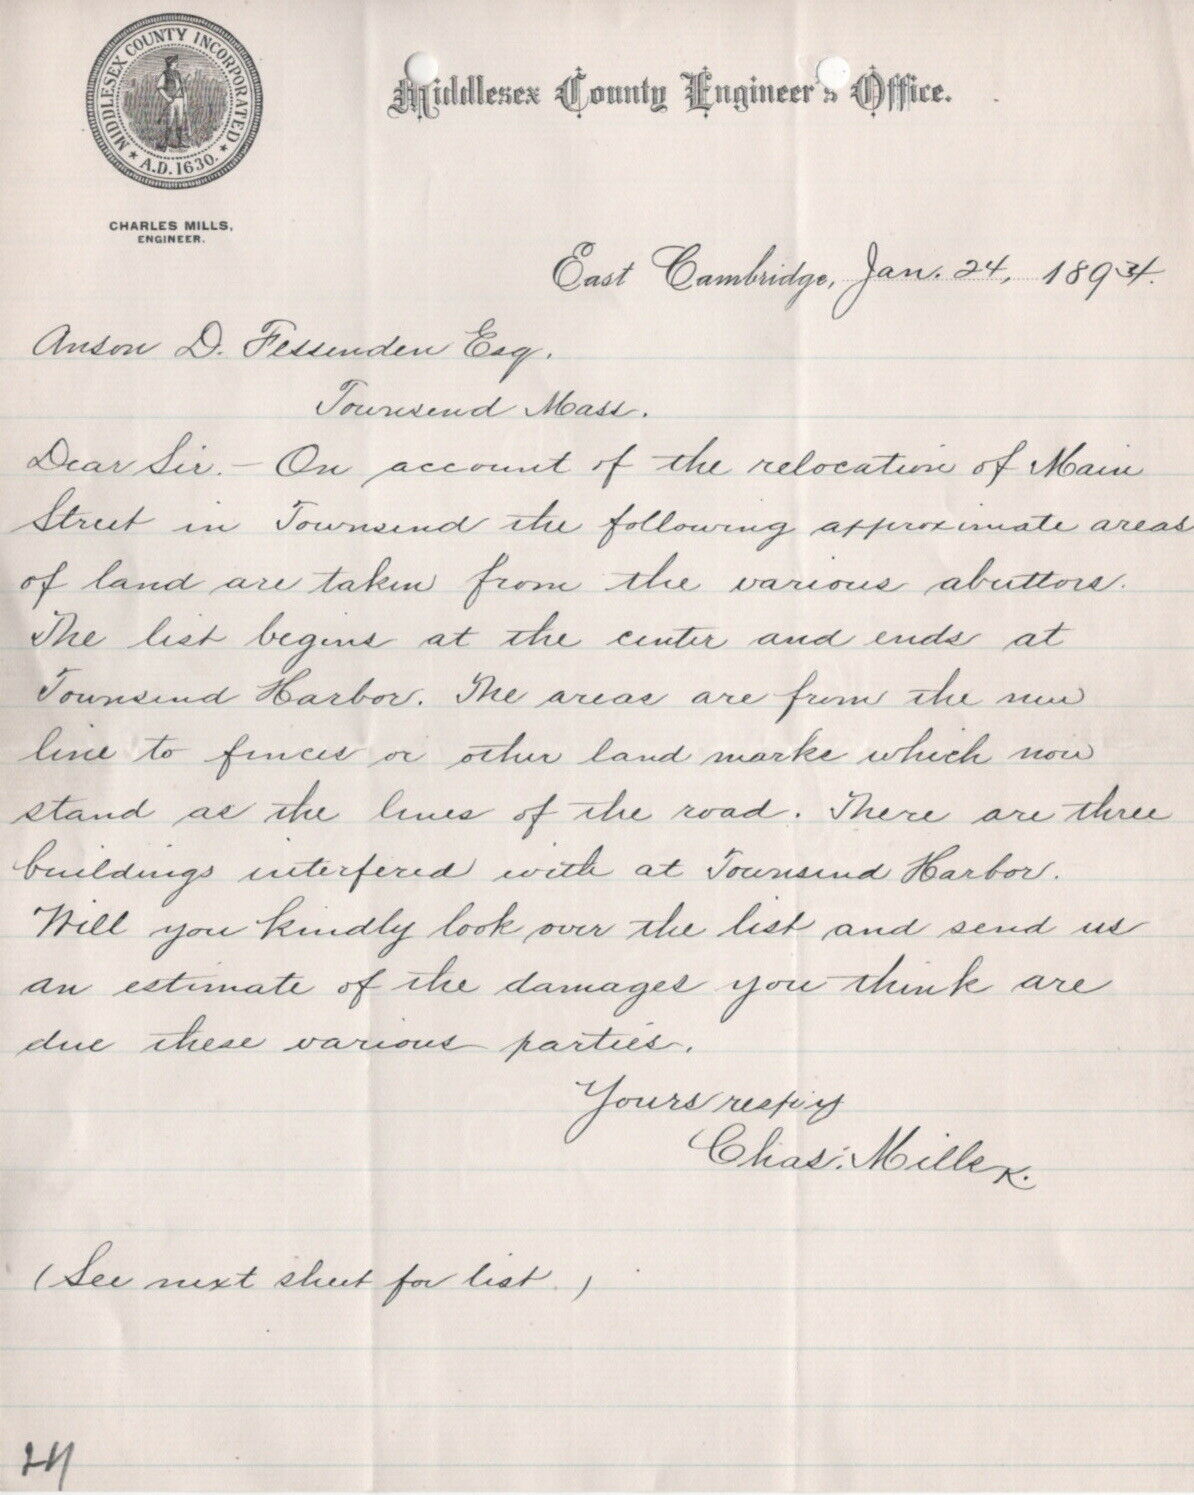 MIDDLESEX COUNTY INCORPORATED
A.D. 1630.
CHARLES MILLS,
ENGINEER.
Middlesex County Engineer's Office.
East Cambridge, Jan. 24, 1894.
Anson D. Fessenden Esq.
Townsend Mass.
Dear Sir. - On account of the relocation of Main
Street in Townsend the following approximate areas
of land are taken from the various abuttors.
The list begins at the center and ends at
Townsend Harbor. The areas are from the new
line to fences or other land marks which now
stand as the lines of the road. There are three
buildings interfered with at Townsend Harbor.
Will you kindly look over the list and send us
an estimate of the damages you think are
due these various parties.
Yours resp'y
Chas. Mills
(See next sheet for list.)
24